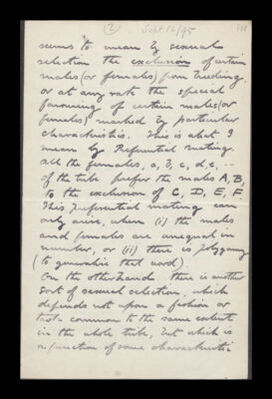 (2) Sept 12/95
seems to mean by sexual
selection the exclusion of certain
males (or females) from breeding,
or at any rate the special
favouring of certain males (or
females) marked by particular
characteristics. This is what I
mean by Preferential mating.
All the females, a, b, c, d, e, --
of the tribe prefer the males A, B,
to the exclusion of C, D, E, F.
This preferential mating can
only arise, when (i) the males
and females are unequal in
number, or (ii) there is polygamy
(to generalise that word).
On the other hand there is another
sort of sexual selection which
depends not upon a fashion or
taste common to the same extent
in the whole tribe, but which is
a function of some characteristic